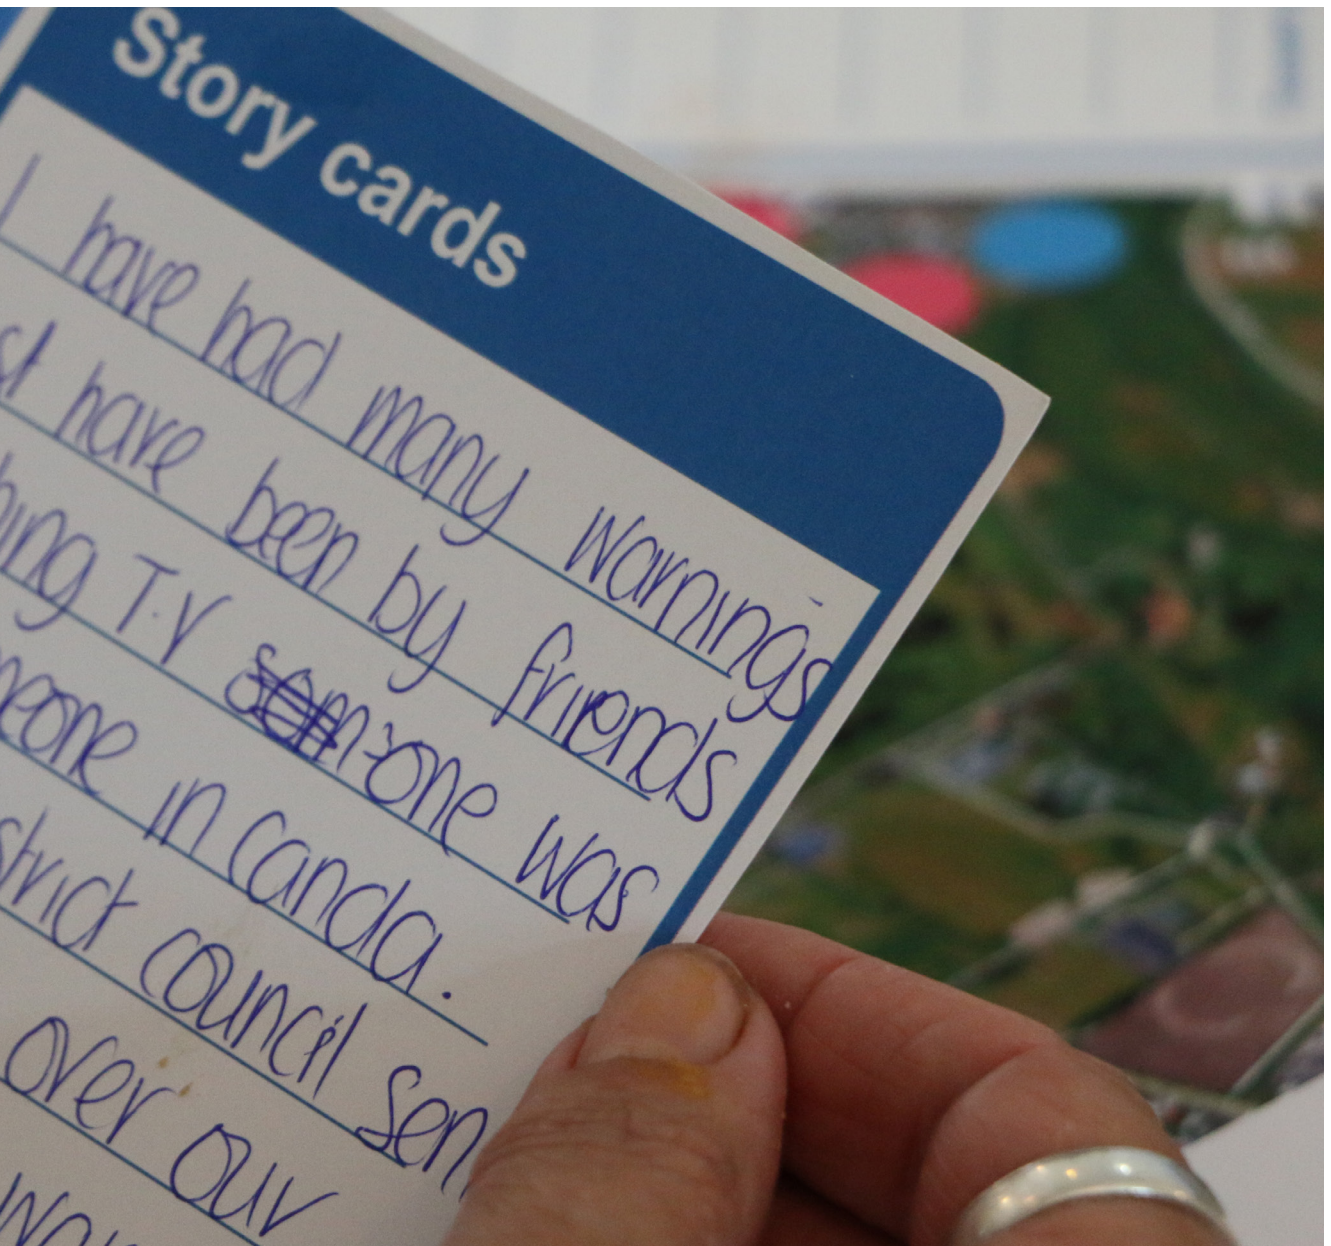 Story cards
I have had many warnings
st have been by friends
hing T.V som-one was
meone in canda.
strict council sen
over our